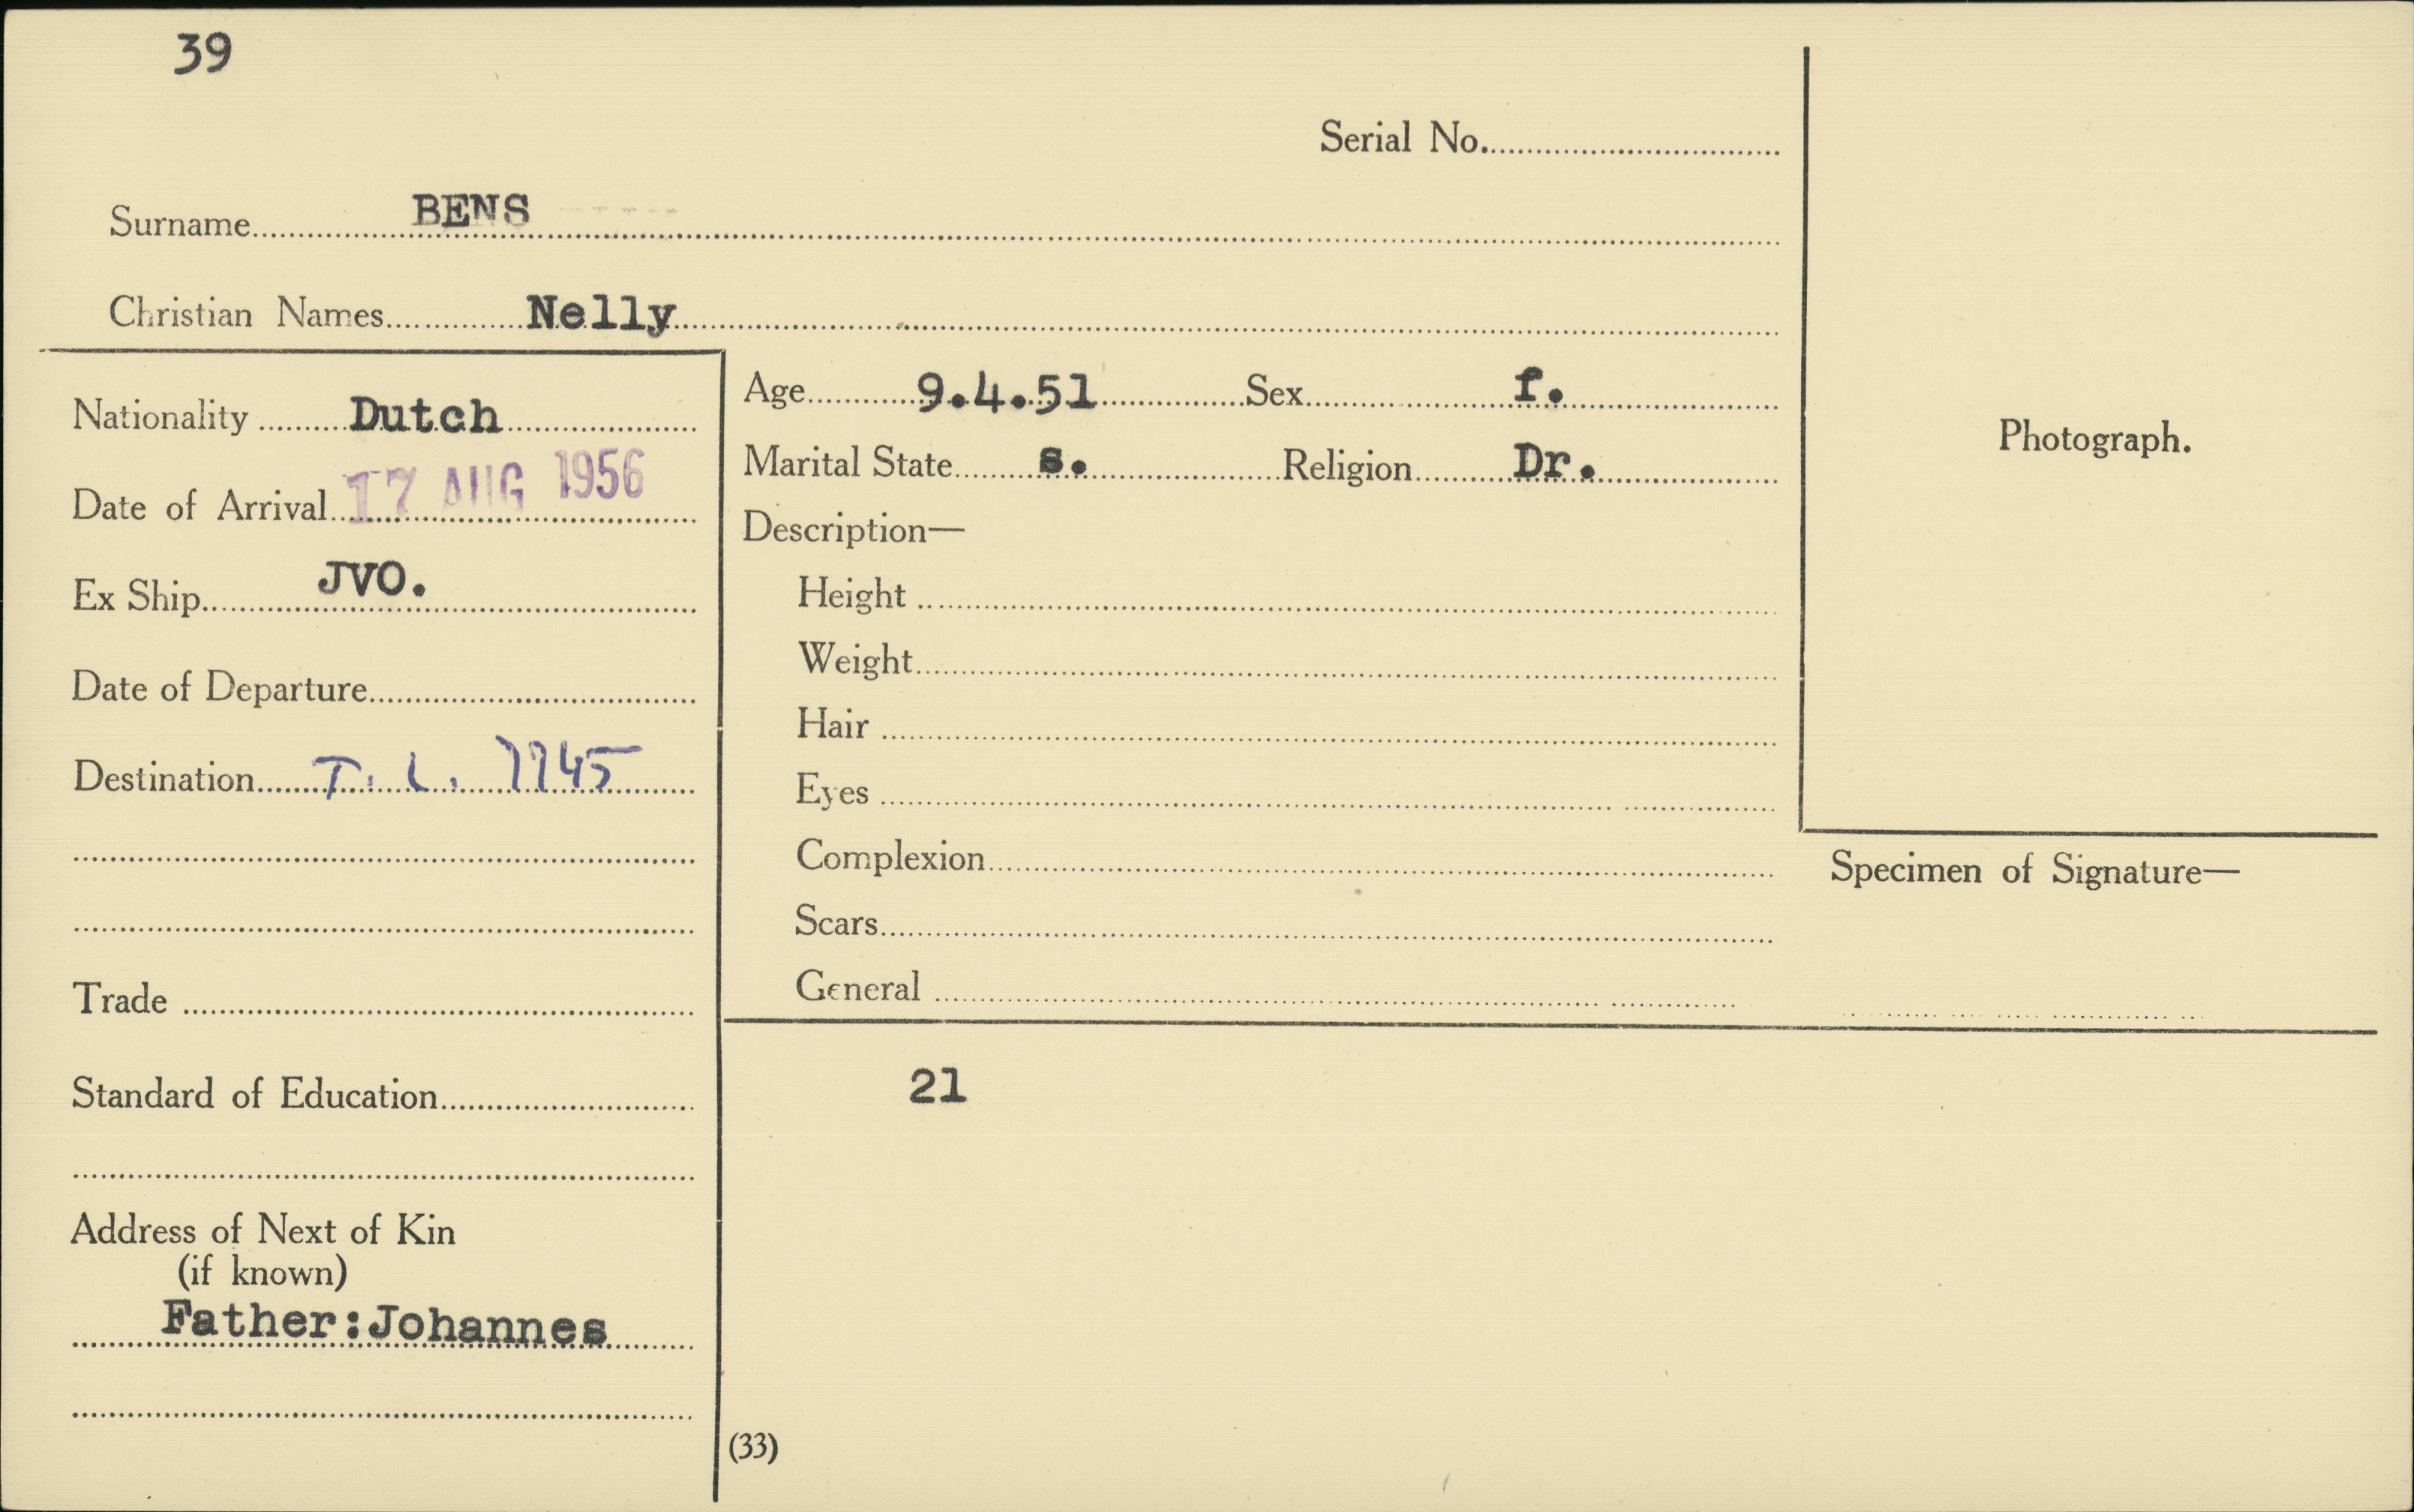 39
Serial No.
Surname BENS
Christian Names Nelly
Nationality Dutch
Date of Arrival 17 AUG 1956
Ex Ship JVO.
Date of Departure
Destination T. L.
Trade
Standard of Education
Address of Next of Kin
(if known)
Father:Johannes
Age 9.4.51 Sex f.
Marital State s. Religion Dr.
Description—
Height
Weight
Hair
Eyes
Complexion
Scars
General
21
(33)
Photograph.
Specimen of Signature—